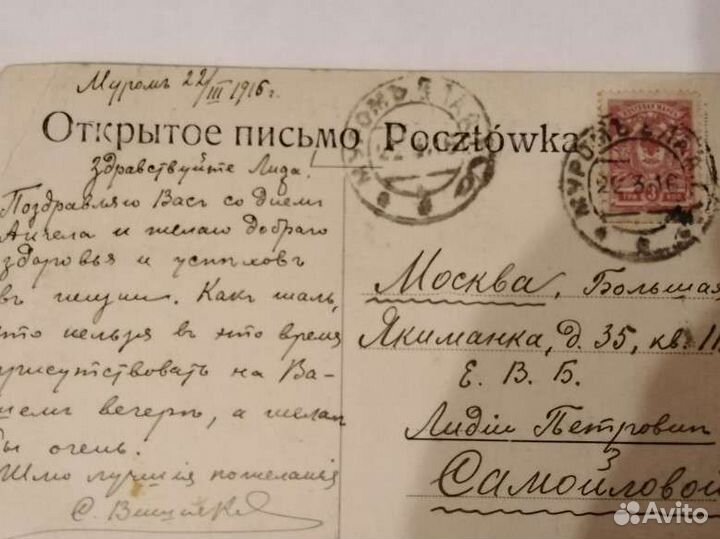 Муромъ 22/III 1916 г.
Открытое письмо Pocztówka
Здравствуйте Лида!
Поздравляю Васъ со днемъ
Ангела и желаю добраго
здоровья и успѣховъ
въ Какъ жаль,
что нельзя въ это время
присутствовать на Ва-
шемъ вечерѣ, а желал
бы очень.
Шлю лучшія пожеланія
С.
МУРОМЪ
МУРОМЪ
22 3 16
Москва, Большая
Якиманка, д. 35, кв. 11
Е. В. Б.
Лидіи Петровн
Самойловой
Avito